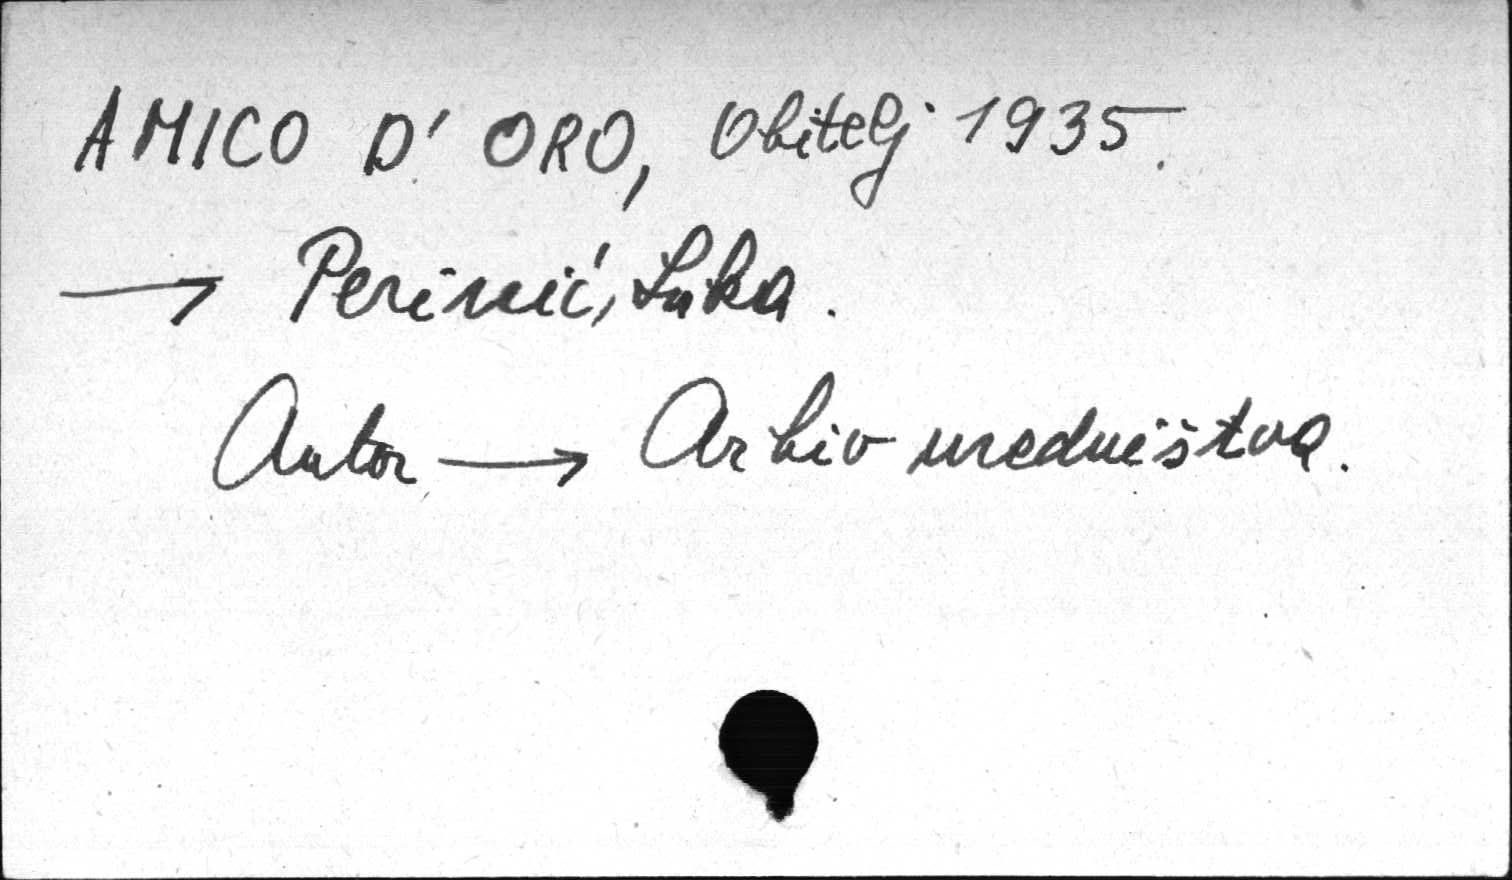 AMICO D' ORO, Obitelj 1935.
→ Perinić, Luka.
Autor → Arhiv uredništva.